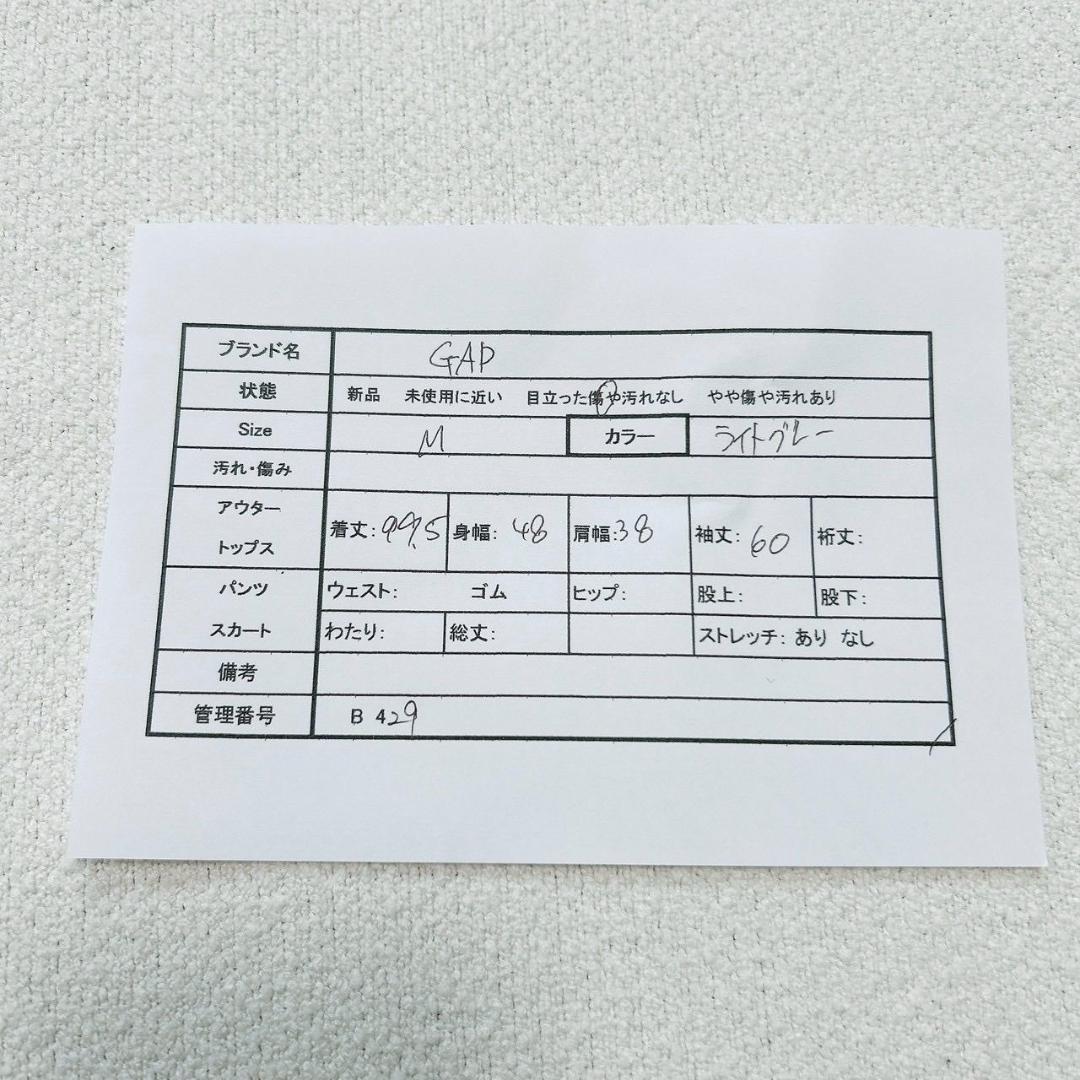 ブランド名 GAP
状態 新品 未使用に近い 目立った傷や汚れなし やや傷や汚れあり
Size M カラー ライトグレー
汚れ・傷み
アウター
トップス
着丈: 99.5 身幅: 48 肩幅:38 袖丈: 60 裄丈:
パンツ ウェスト: ゴム ヒップ: 股上: 股下:
スカート わたり: 総丈: ストレッチ: あり なし
備考
管理番号 B 429